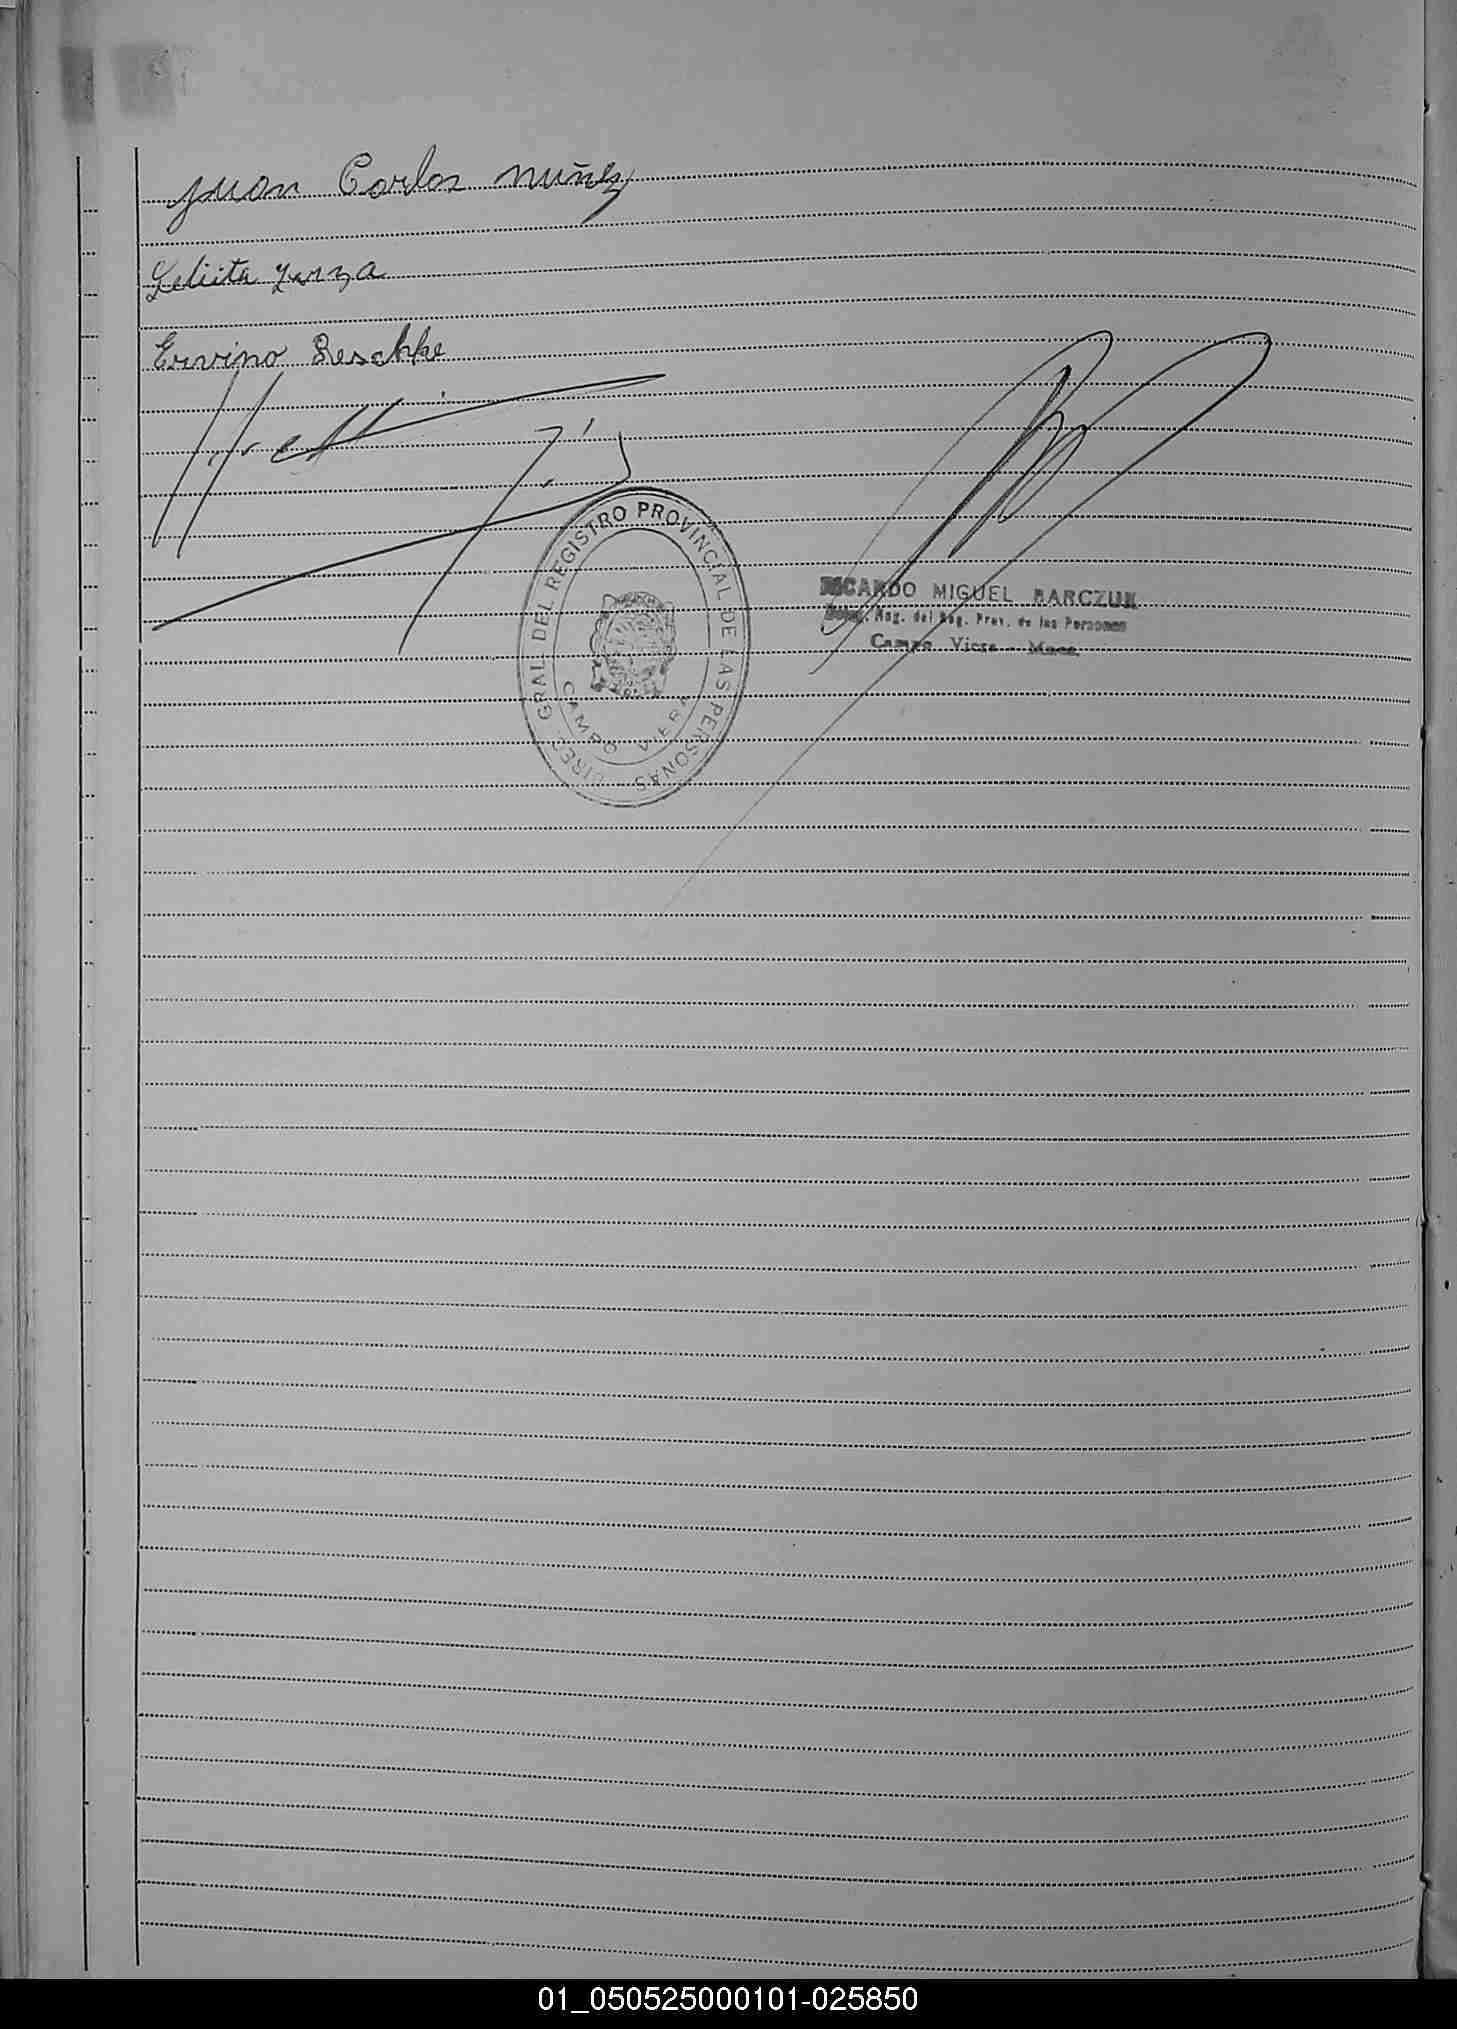 Juan Carlos Nuñez
Ervino Reschke
DIREC. GRAL. DEL REGISTRO PROVINCIAL DE LAS PERSONAS
CAMPO VIERA
RICARDO MIGUEL BARCZUK
Reg. del Reg. Prov. de las Personas
Campo Viera - Mnes.
01_050525000101-025850